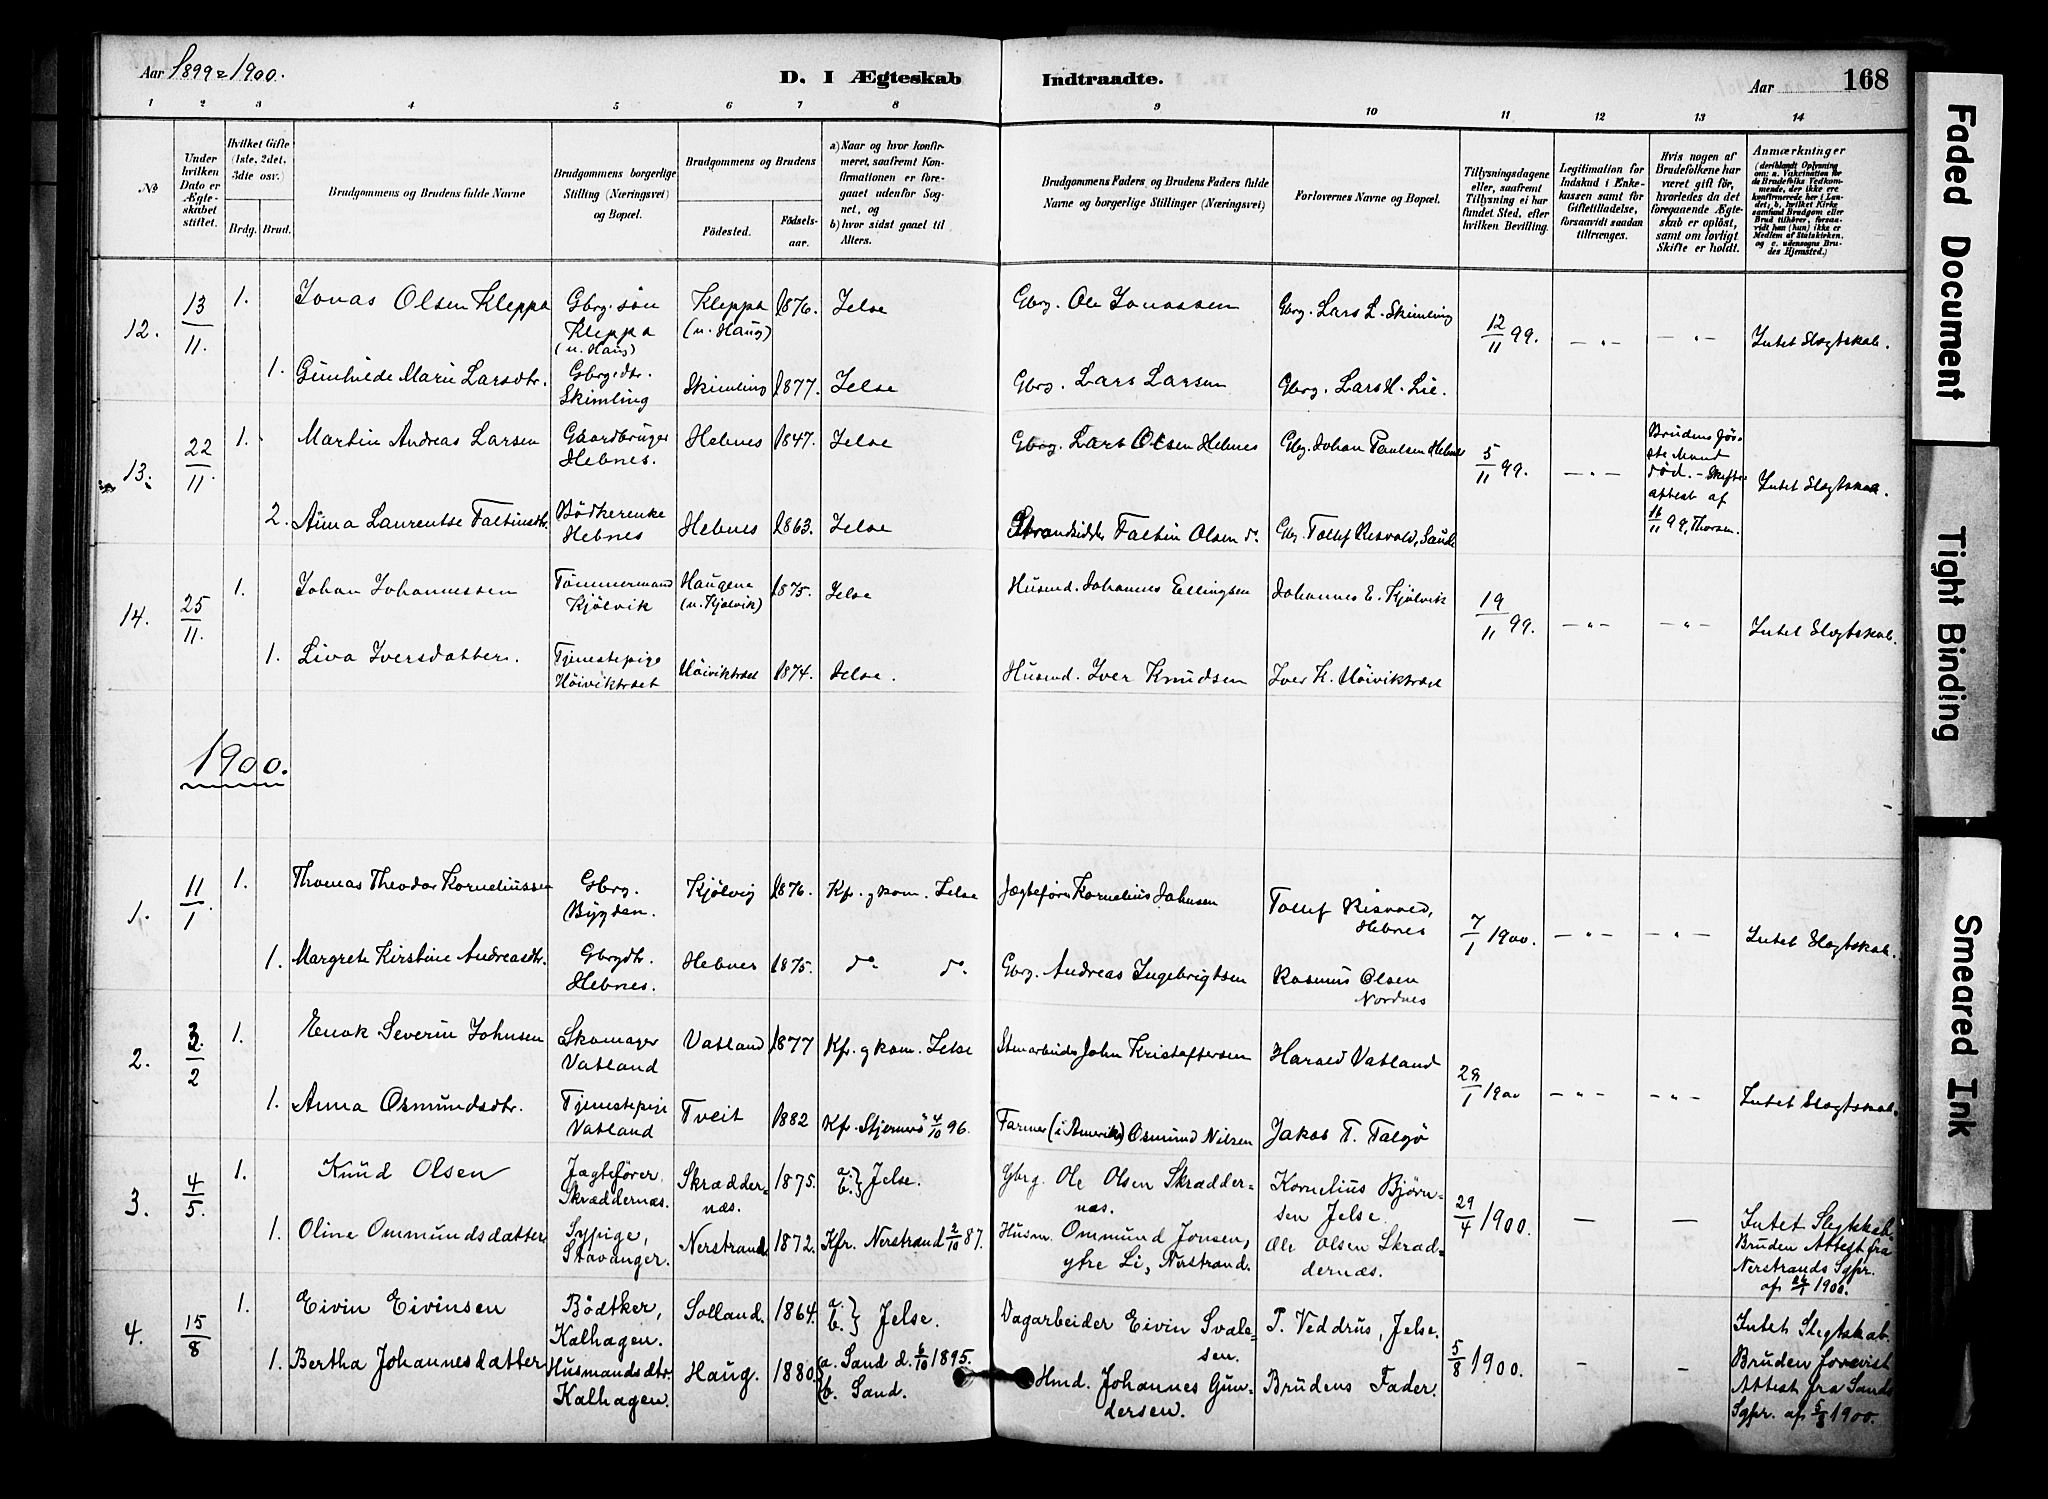 Aar 1899=1900.
D. I Ægteskab Indtraadte.
Aar
168
1 2 3 4 5 6 7 8 9 10 11 12 13 14
No
Under hvilken Dato er Ægteskabet stiftet.
Hvilket Gifte (1ste, 2det, 3die osv.)
Brdg. Brud.
Brudgommens og Brudens fulde Navne
Brudgommens borgerlige Stilling (Næringsvei) og Bopæl.
Brudgommens og Brudens
Fødested.
Fødsels-aar.
a) Naar og hvor konfirmeret, saafremt Konfirmationen er foregaaet udenfor Sognet, og
b) hvor sidst gaaet til Alters.
Brudgommens Faders og Brudens Faders fulde Navne og borgerlige Stillinger (Næringsvei)
Forlovernes Navne og Bopæl.
Tillysningsdagene eller, saafremt Tillysning ei har fundet Sted, efter hvilken Bevilling.
Legitimation for Indskud i Enkekassen samt for Giftetilladelse, forsaavidt saadan tiltrænges.
Hvis nogen af Brudefolkene har været gift før, hvorledes da det foregaaende Ægteskab er opløst, samt om lovligt Skifte er holdt.
Anmærkninger
(deriblandt Oplysning om: a. Vakcination for de Brudefolks Vedkommende, der ikke ere konfirmerede her i Landet, b. hvilket Kirkesamfund Brudgom eller Brud tilhører, forsaavidt han (hun) ikke er Medlem af Statskirken, og c. udensogns Brudes Hjemsted.)
12. 13/11. 1. Jonas Olsen Kleppa Gbrg. søn Kleppa (u. Haug) Kleppa (u. Haug) 1876. Jelse Gbrg. Ole Jonassen Gbrg. Lars L. Skimling 12/11 99. — " — — " — Intet Slægtskab.
1. Gunhilde Marie Larsdtr. Gbrg. dtr. Skimling Skimling 1877. Jelse Gbrg. Lars Larsen Gbrg. Lars H. Lie.
13. 22/11. 1. Martin Andreas Larsen Gaardbruger Hebnes. Hebnes 1847. Jelse Gbrg. Lars Olsen Hebnes Gbrg. Johan Paulsen Hebnes 5/11 99. — " — Brudens første Mand død. – Skifteattest af 16/11 99, Thorsen. Intet Slægtskab.
2. Anna Laurentse Faltinsdtr. Bödkerenke Hebnes Hebnes 1863. Jelse Strandsidder Faltin Olsen do. Gbr. Tollef Risvold, Sande
14. 25/11. 1. Johan Johannessen Tømmermand Kjølvik Haugene (u. Kjølvik) 1875. Jelse Husmd. Johannes Ellingsen Johannes E. Kjølvik 19/11 99. — " — — " — Intet Slægtskab.
1. Liva Iversdatter. Tjenestepige Høiviktræet Høiviktræet 1874. Jelse. Husmd. Iver Knudsen Iver K. Høiviktræet
1900.
1. 11/1. 1. Thomas Theodor Korneliussen Gbrg. Bygden. Kjølvig 1876. Kfr. g kom. Jelse Jægtefører Kornelius Johnsen Tollef Risvold, Hebnes 7/1 1900. — " — — " — Intet Slægtskab.
1. Margrete Kirstine Andreasdtr. Gbrgdtr. Hebnes. Hebnes 1875. do do. Gbrg. Andreas Ingebrigtsen Rasmus Olsen Nordnes
2. 2/2 1. Enok Severin Johnsen Skomager Vatland Vatland 1877 Kfr. g kom. Jelse Stenarbeider John Kristoffersen Harald Vatland 28/1 1900 — " — — " — Intet Slægtskab.
1. Anna Osmundsdtr. Tjenestepige Vatland Tveit 1882 Kfr. Stjernerö 4/10 96. Farmer (i Amerika) Osmund Nilsen Jakob T. Talgø
3. 4/5. 1. Knud Olsen Jægtefører Skræddernæs. Skræddernæs. 1875. a. b. } Jelse. Gbrg. Ole Olsen Skræddernæs. Kornelius Bjørnsen Jelse. 29/4 1900. — — Intet Slegtskab. Bruden Attest fra Nerstrands Sgpr. af 24/4 1900.
1. Oline Ommundsdatter Sypige, Stavanger. Nerstrand 1872. Kfr. Nerstrand 2/10 87. Husm. Ommund Jonsen, ytre Li, Nerstrand. Ole Olsen Skræddernæs.
4. 15/8 1. Eivin Eivinsen Bödtker, Kalhagen. Solland. 1864. a. b. } Jelse. Dagarbeider Eivin Svalesen. P. Veddrus, Jelse. 5/8 1900. — — Intet Slegtskab. Bruden forevist Attest fra Sands Sgpr. af 5/8 1900.
1. Bertha Johannesdatter Husmandsdtr. Kalhagen. Haug. 1880. a. Sand d. 6/10 1895. b. Sand. Hmd. Johannes Gundersen. Brudens Fader.
Faded Document
Tight Binding
Smeared Ink